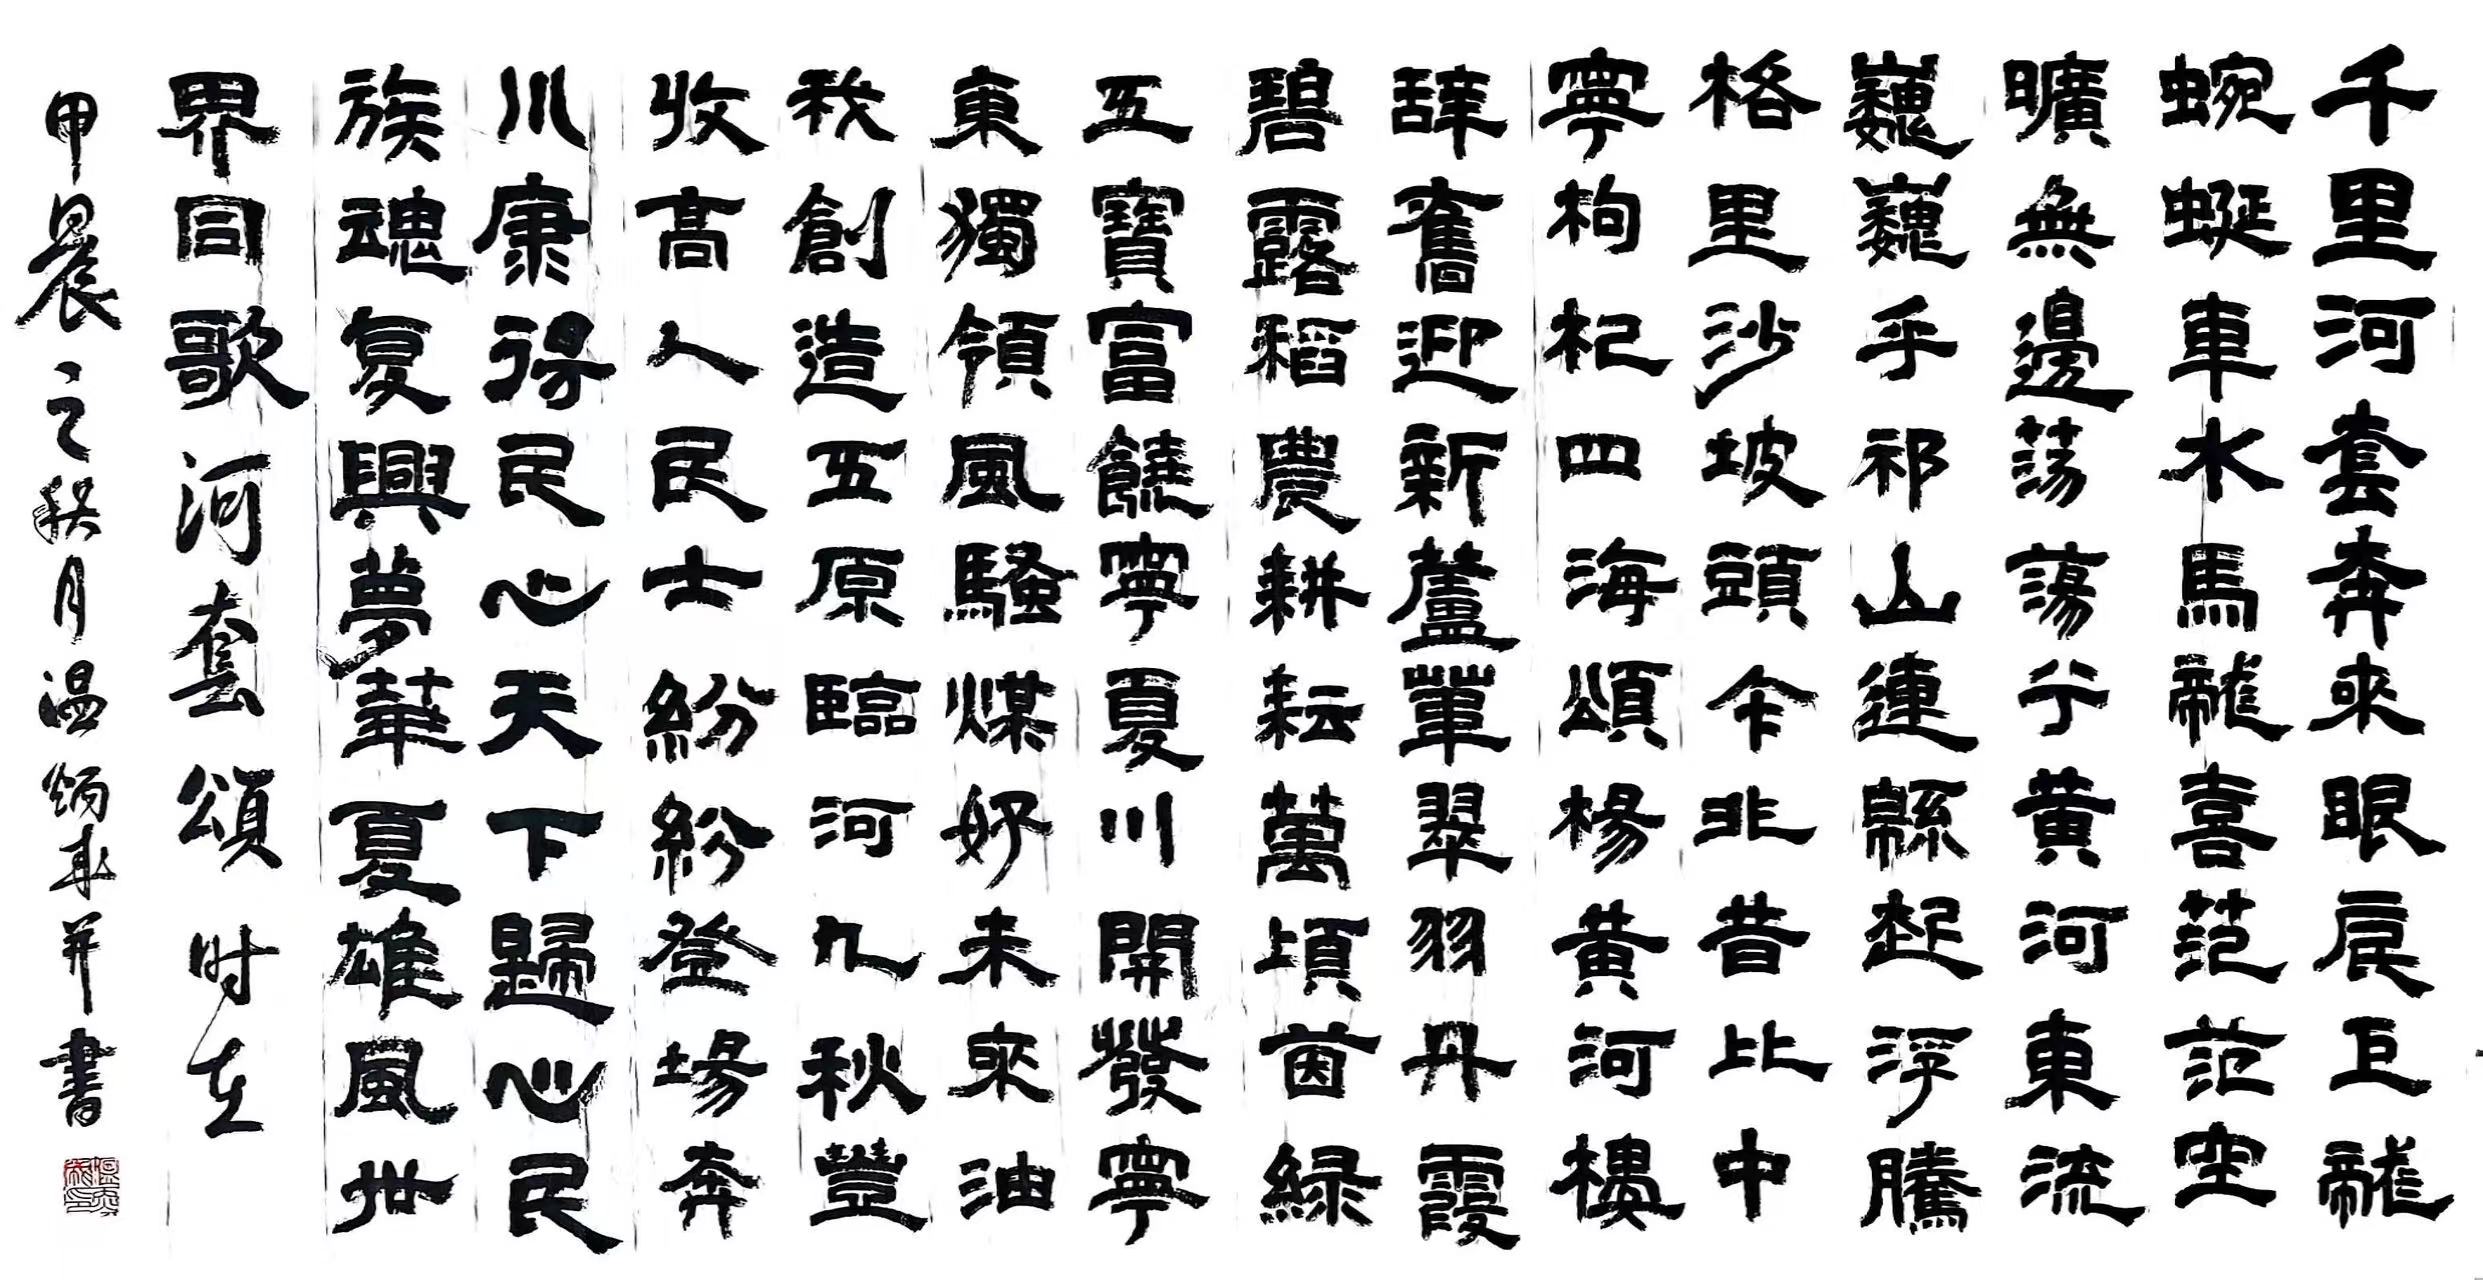 千里河套奔來眼底巨龍
蜿蜒車水馬龍喜范范空
曠無邊蕩蕩兮黃河東流
巍巍乎祁山連緜起浮騰
格里沙坡頭今非昔比中
寧枸杞四海頌楊黃河樓
辞舊迎新蘆葦翠羽丹霞
碧露稻農耕耘萬頃茵綠
五寶富饒寧夏川開發寧
東獨領風騷煤好未來油
我創造五原臨河九秋豐
收高人民士紛紛登場奔
小康得民心天下歸心民
族魂复興夢華夏雄風世
界同歌河套頌时在
甲晨之秋月温炳并書